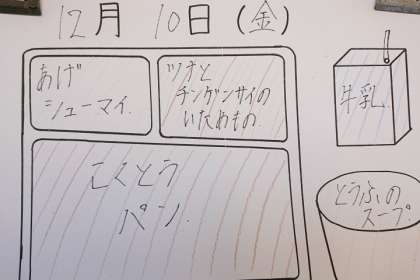 12月 10日 (金)
あげ
シューマイ.
ツナと
チンゲンサイの
いためもの.
牛乳.
こくとう
パン.
とうふの
スープ.